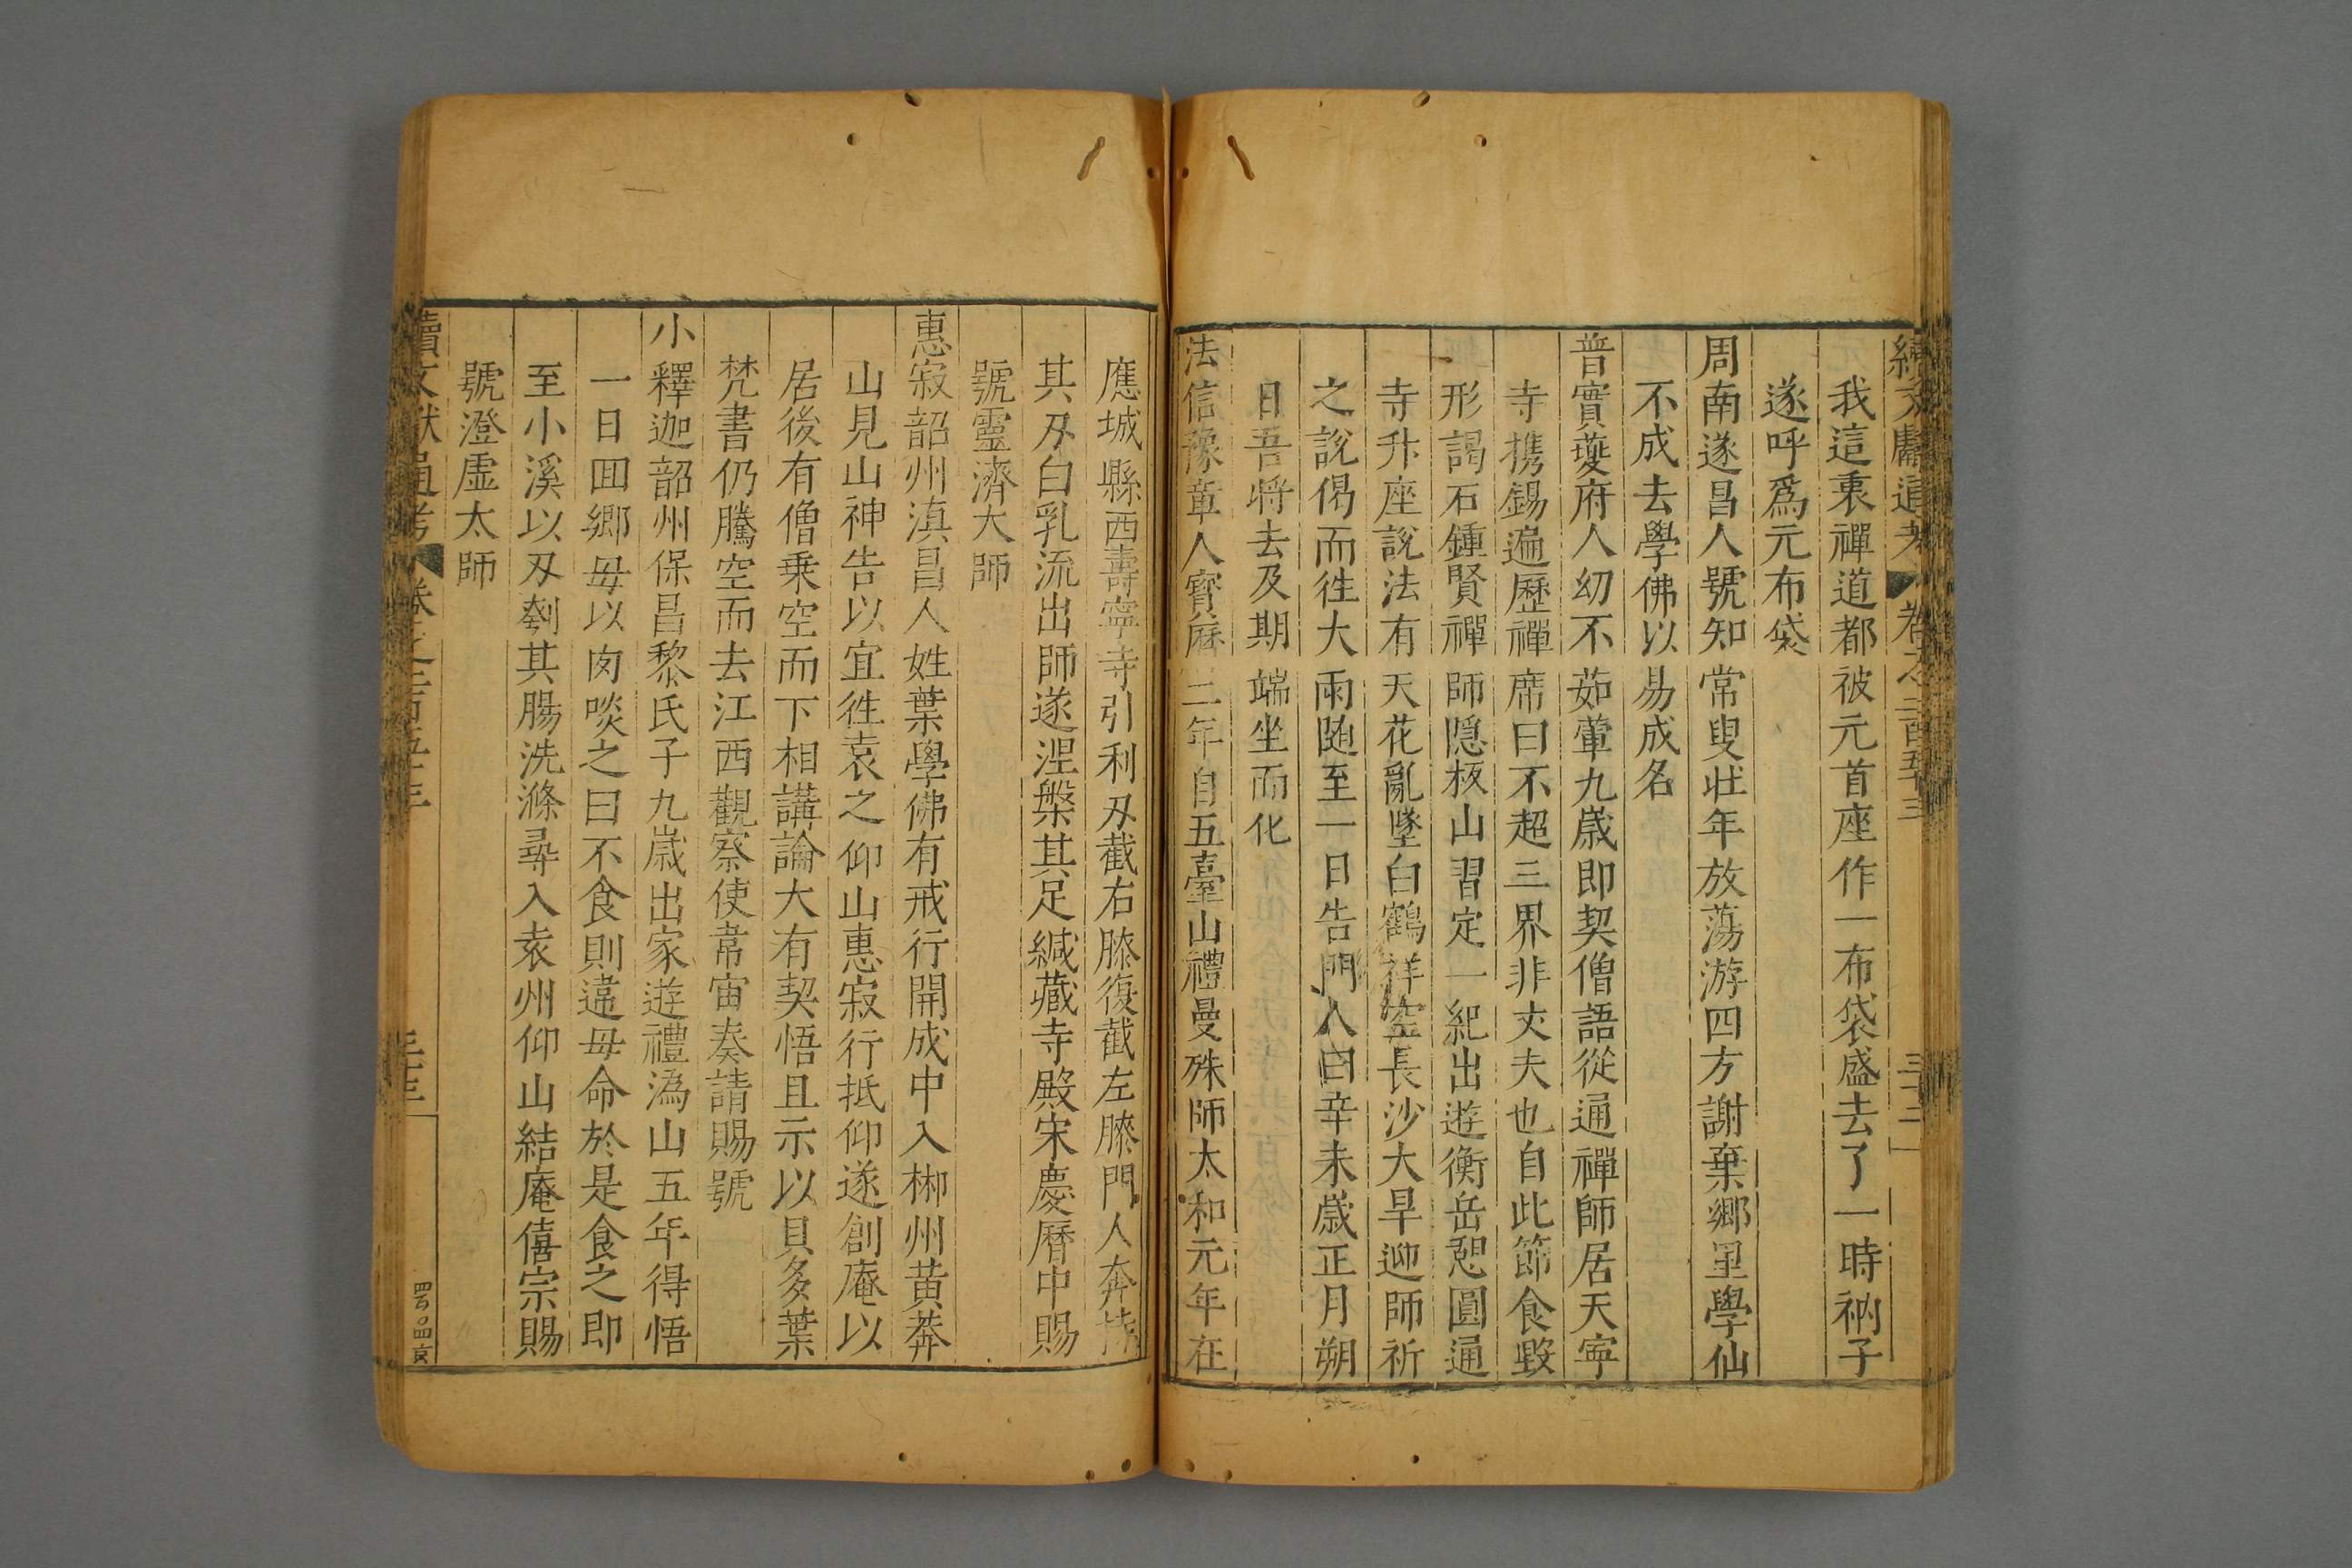 續文獻通考 卷之二百五十三 三十二
我這裏禪道都被元首座作一布袋盛去了一時衲子
遂呼爲元布袋
周南遂昌人號知常叟壯年放蕩游四方謝棄鄉里學仙
不成去學佛以易成名
普實夔府人幼不茹葷九歲即契僧語從通禪師居天寧
寺携錫遍歷禪席曰不超三界非丈夫也自此節食毀
形謁石鍾賢禪師隱板山習定一紀出遊衡岳憇圓通
寺升座說法有天花亂墜白鶴祥空長沙大旱迎師祈
之說偈而徃大雨随至一日告門人曰辛未歲正月朔
日吾將去及期端坐而化
法信豫章人寶曆二年自五臺山禮曼殊師太和元年在
應城縣西壽寧寺引利刄截右膝復截左膝門人奔持
其刄白乳流出師遂涅槃其足緘藏寺殿宋慶曆中賜
號靈濟大師
惠寂韶州滇昌人姓葉學佛有戒行開成中入郴州黄莽
山見山神告以宜徃袁之仰山惠寂行抵仰遂創庵以
居後有僧乗空而下相講論大有契悟且示以貝多葉
梵書仍騰空而去江西觀察使韋宙奏請賜號
小釋迦韶州保昌黎氏子九歲出家遊禮潙山五年得悟
一日囬鄉毋以肉啖之曰不食則違毋命於是食之即
至小溪以刄刳其腸洗滌尋入袁州仰山結庵僖宗賜
號澄虛太師
續文獻通考 卷之二百五十三 三十三